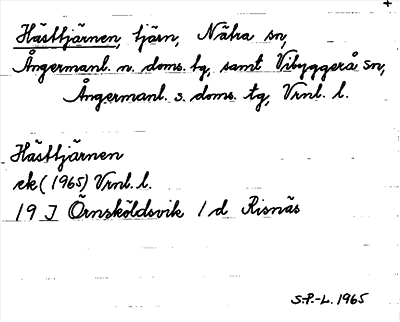 Hästtjärnen, tjärn, Nätra sn,
Ångermanl. n. doms. tg, samt Vibyggerå sn,
Ångermanl. s. doms. tg, Vrnl. l.
Hästtjärnen
ek (1965) Vrnl. l.
19 J Örnsköldsvik 1 d Risnäs
S.P.-L. 1965